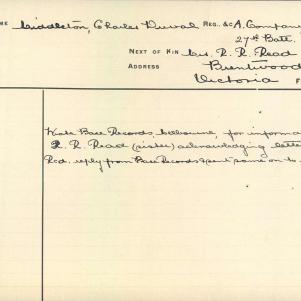 ME Middleton, Charles Duval REG. &c A. Company
27th Batt.
NEXT OF KIN R. R. Read
ADDRESS Brentwood
Victoria F
Base Records, for informa
R. R. Read (sister) acknowledging lette
Rcd. reply from Base Records & sent same on to